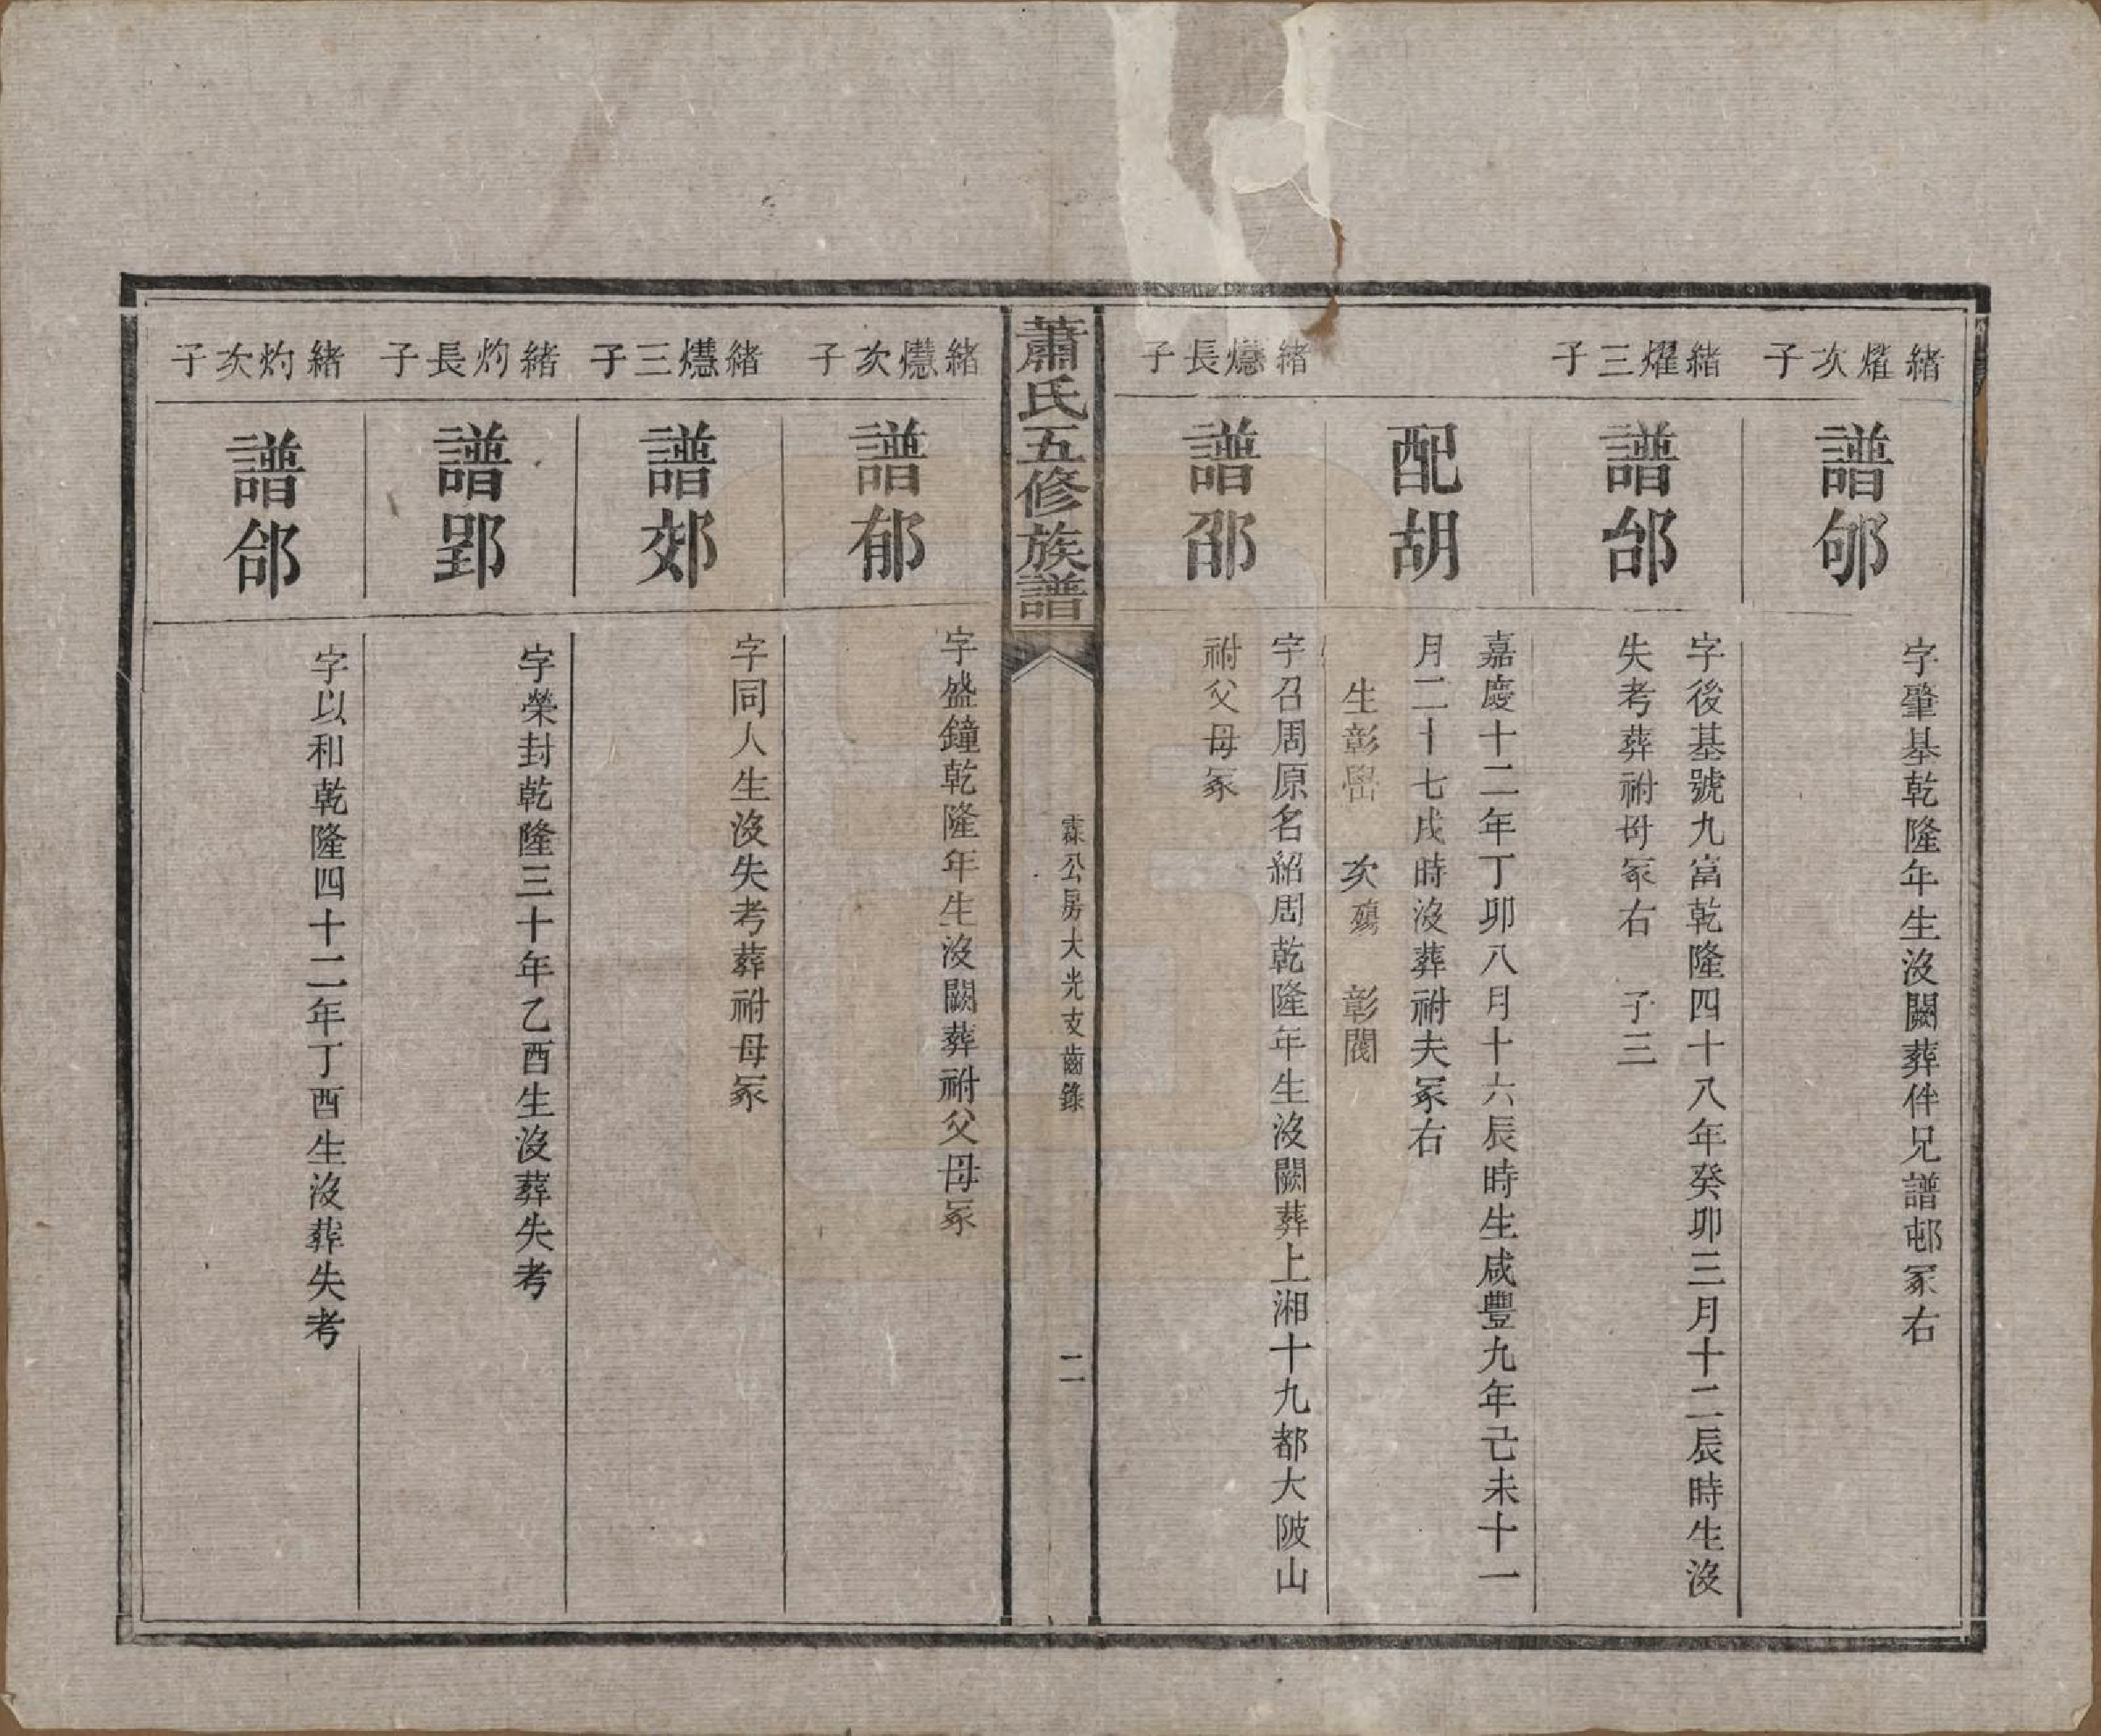 緒燿次子
譜邭
字肇基乾隆年生沒闕葬伴兄譜邨冢右
緒燿三子
譜邰
字後基號九富乾隆四十八年癸卯三月十二辰時生沒
失考葬祔母冢右　子三
配胡
嘉慶十二年丁卯八月十六辰時生咸豐九年己未十一
月二十七戌時沒葬祔夫冢右
生彰嶨　次殤　彰閥
緒爔長子
譜邵
字召周原名紹周乾隆年生沒闕葬上湘十九都大陂山
祔父母冢
蕭氏五修族譜
霖公房大光支齒錄
二
緒爔次子
譜郁
字盛鐘乾隆年生沒闕葬祔父母冢
緒爔三子
譜郊
字同人生沒失考葬祔母冢
緒灼長子
譜郢
字榮封乾隆三十年乙酉生沒葬失考
緒灼次子
譜郃
字以和乾隆四十二年丁酉生沒葬失考